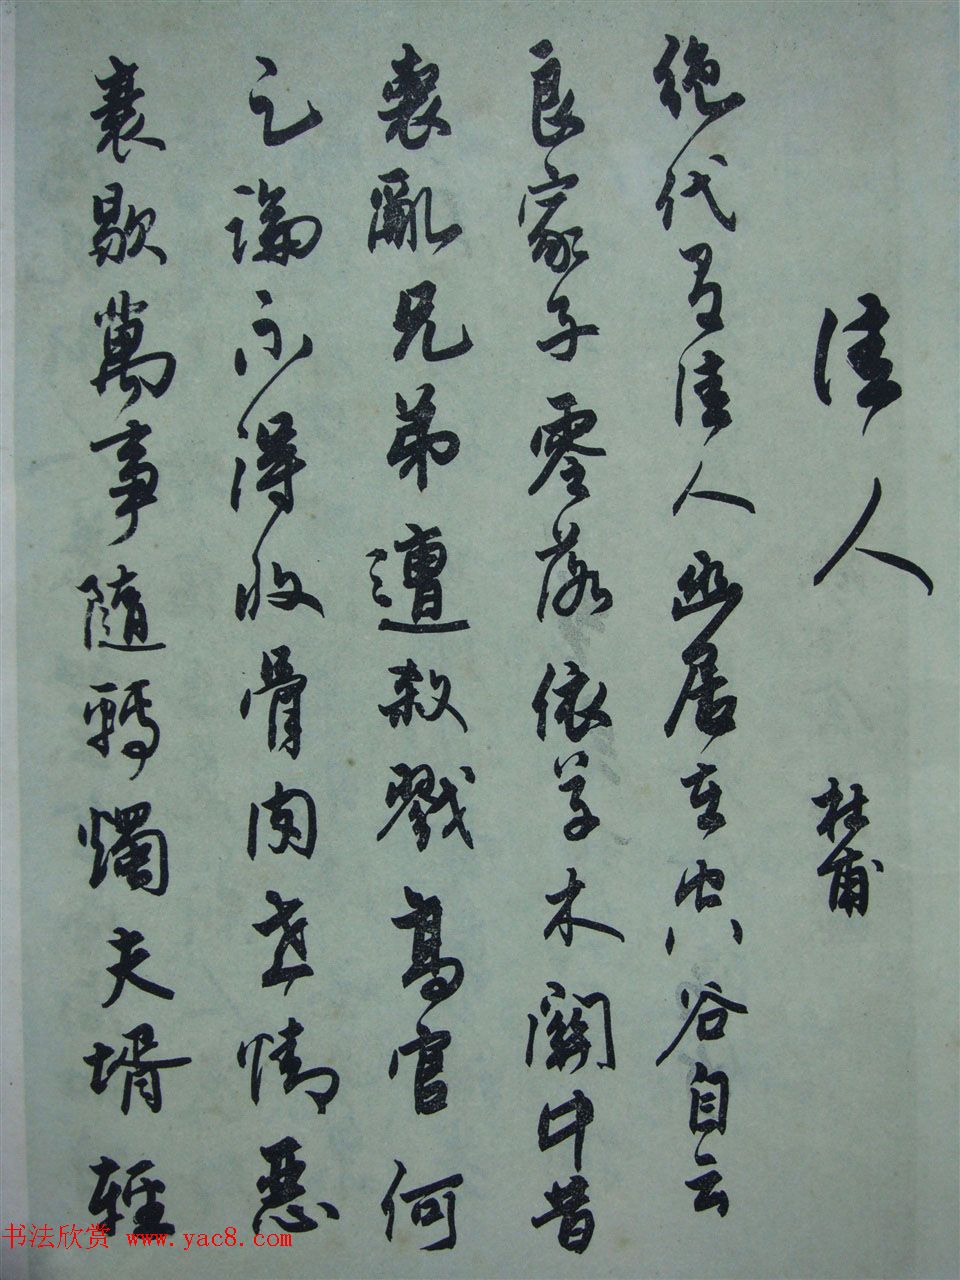 佳人 杜甫
絕代有佳人幽居在空谷自云
良家子零落依草木關中昔
喪亂兄弟遭殺戮高官何
足論不得收骨肉世情惡
衰歇萬事隨轉燭夫壻輕
书法欣赏 www.yac8.com